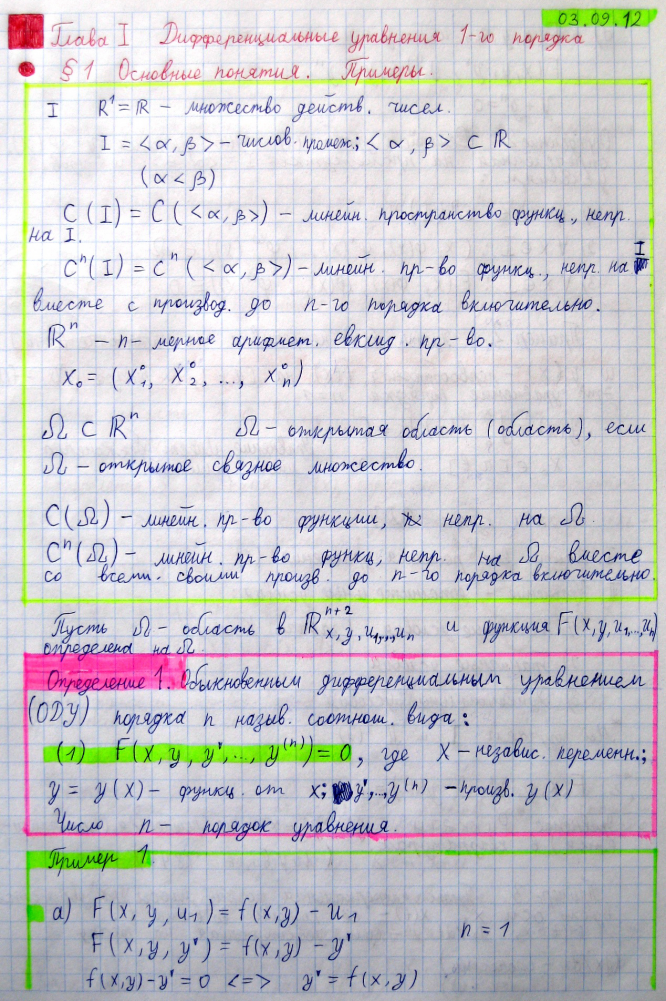 03.09.12
Глава I Дифференциальные уравнения 1-го порядка
§1 Основные понятия. Примеры.
I R¹ = ℝ – множество действ. чисел.
I = <α, β> – числов. промеж.; <α, β> ⊂ ℝ
(α < β)
C(I) = C(<α, β>) – линейн. пространство функц., непр.
на I.
Cⁿ(I) = Cⁿ(<α, β>) – линейн. пр-во функц., непр. на I
вместе с производ. до n-го порядка включительно.
ℝⁿ – n-мерное арифмет. евклид. пр-во.
x₀ = (x₁⁰, x₂⁰, ..., xₙ⁰)
Ω ⊂ ℝⁿ Ω – открытая область (область), если
Ω – открытое связное множество.
C(Ω) – линейн. пр-во функции, непр. на Ω.
Cⁿ(Ω) – линейн. пр-во функц, непр. на Ω вместе
со всеми. своими произв. до n-го порядка включительно.
Пусть Ω – область в ℝⁿ⁺² x, y, u₁,..., uₙ и функция F(x, y, u₁,..., uₙ)
определена на Ω.
Определение 1. Обыкновенным дифференциальным уравнением
(ОДУ) порядка n назыв. соотнош. вида:
(1) F(x, y, y',..., y⁽ⁿ⁾) = 0, где x – независ. переменн.;
y = y(x) – функц. от x; y',..., y⁽ⁿ⁾ – произв. y(x)
Число n – порядок уравнения.
Пример 1.
а) F(x, y, u₁) = f(x,y) – u₁
n = 1
F(x, y, y') = f(x,y) – y'
f(x,y) – y' = 0 <=> y' = f(x,y)